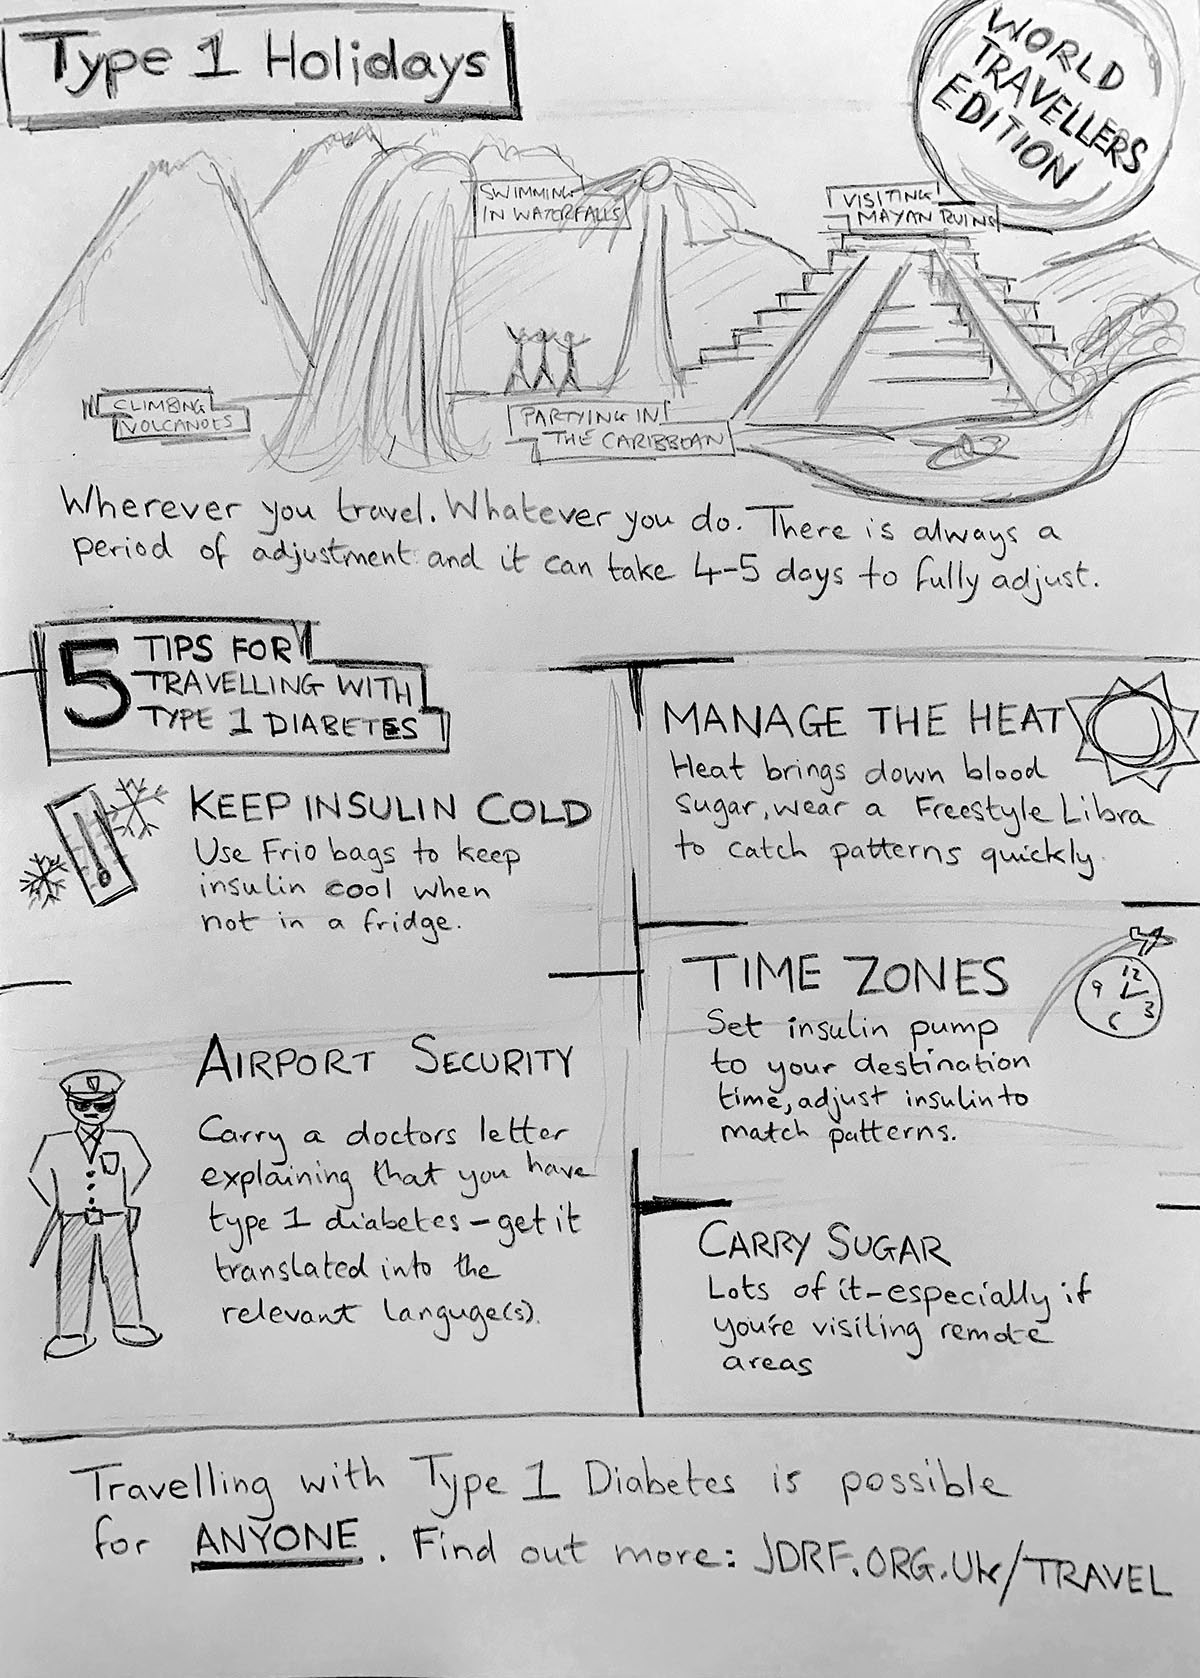 Type 1 Holidays
WORLD
TRAVELLERS
EDITION
SWIMMING
IN WATERFALLS
VISITING
MAYAN RUINS
CLIMBING
VOLCANOES
PARTYING IN
THE CARIBBEAN
Wherever you travel. Whatever you do. There is always a
period of adjustment and it can take 4-5 days to fully adjust.
5 TIPS FOR
TRAVELLING WITH
TYPE 1 DIABETES
KEEP INSULIN COLD
Use Frio bags to keep
insulin cool when
not in a fridge.
AIRPORT SECURITY
Carry a doctors letter
explaining that you have
type 1 diabetes – get it
translated into the
relevant languge(s).
MANAGE THE HEAT
Heat brings down blood
sugar, wear a Freestyle Libra
to catch patterns quickly.
TIME ZONES
12
9
3
6
Set insulin pump
to your destination
time, adjust insulin to
match patterns.
CARRY SUGAR
Lots of it – especially if
you're visiting remote
areas
Travelling with Type 1 Diabetes is possible
for ANYONE. Find out more: JDRF.ORG.UK/TRAVEL